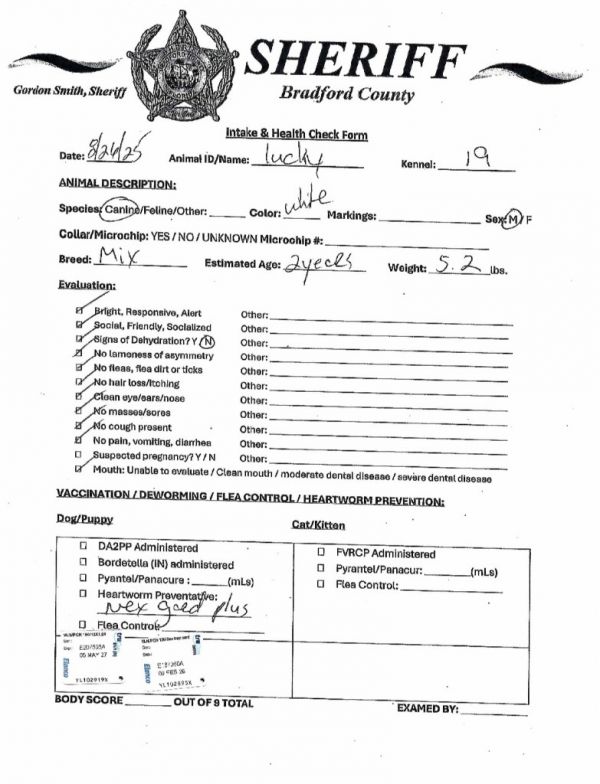 SHERIFF
Gordon Smith, Sheriff
Bradford County
Intake & Health Check Form
Date: 8/26/25 Animal ID/Name: lucky Kennel: 19
ANIMAL DESCRIPTION:
Species: Canine/Feline/Other: Color: white Markings: Sex: M/F
Collar/Microchip: YES / NO / UNKNOWN Microchip #:
Breed: Mix Estimated Age: 2 years Weight: 5.2 lbs.
Evaluation:
Bright, Responsive, Alert Other:
Social, Friendly, Socialized Other:
Signs of Dehydration? Y N Other:
No lameness of asymmetry Other:
No fleas, flea dirt or ticks Other:
No hair loss/itching Other:
Clean eye/ears/nose Other:
No masses/sores Other:
No cough present Other:
No pain, vomiting, diarrhea Other:
Suspected pregnancy? Y / N Other:
Mouth: Unable to evaluate / Clean mouth / moderate dental disease / severe dental disease
VACCINATION / DEWORMING / FLEA CONTROL / HEARTWORM PREVENTION:
Dog/Puppy Cat/Kitten
DA2PP Administered FVRCP Administered
Bordetella (IN) administered Pyrantel/Panacur: (mLs)
Pyantel/Panacure : (mLs) Flea Control:
Heartworm Preventative:
Nex gard plus
Flea Control:
05 MAY 27
Elanco
YL102919X
Elanco
YL102895X
BODY SCORE OUT OF 9 TOTAL EXAMED BY: